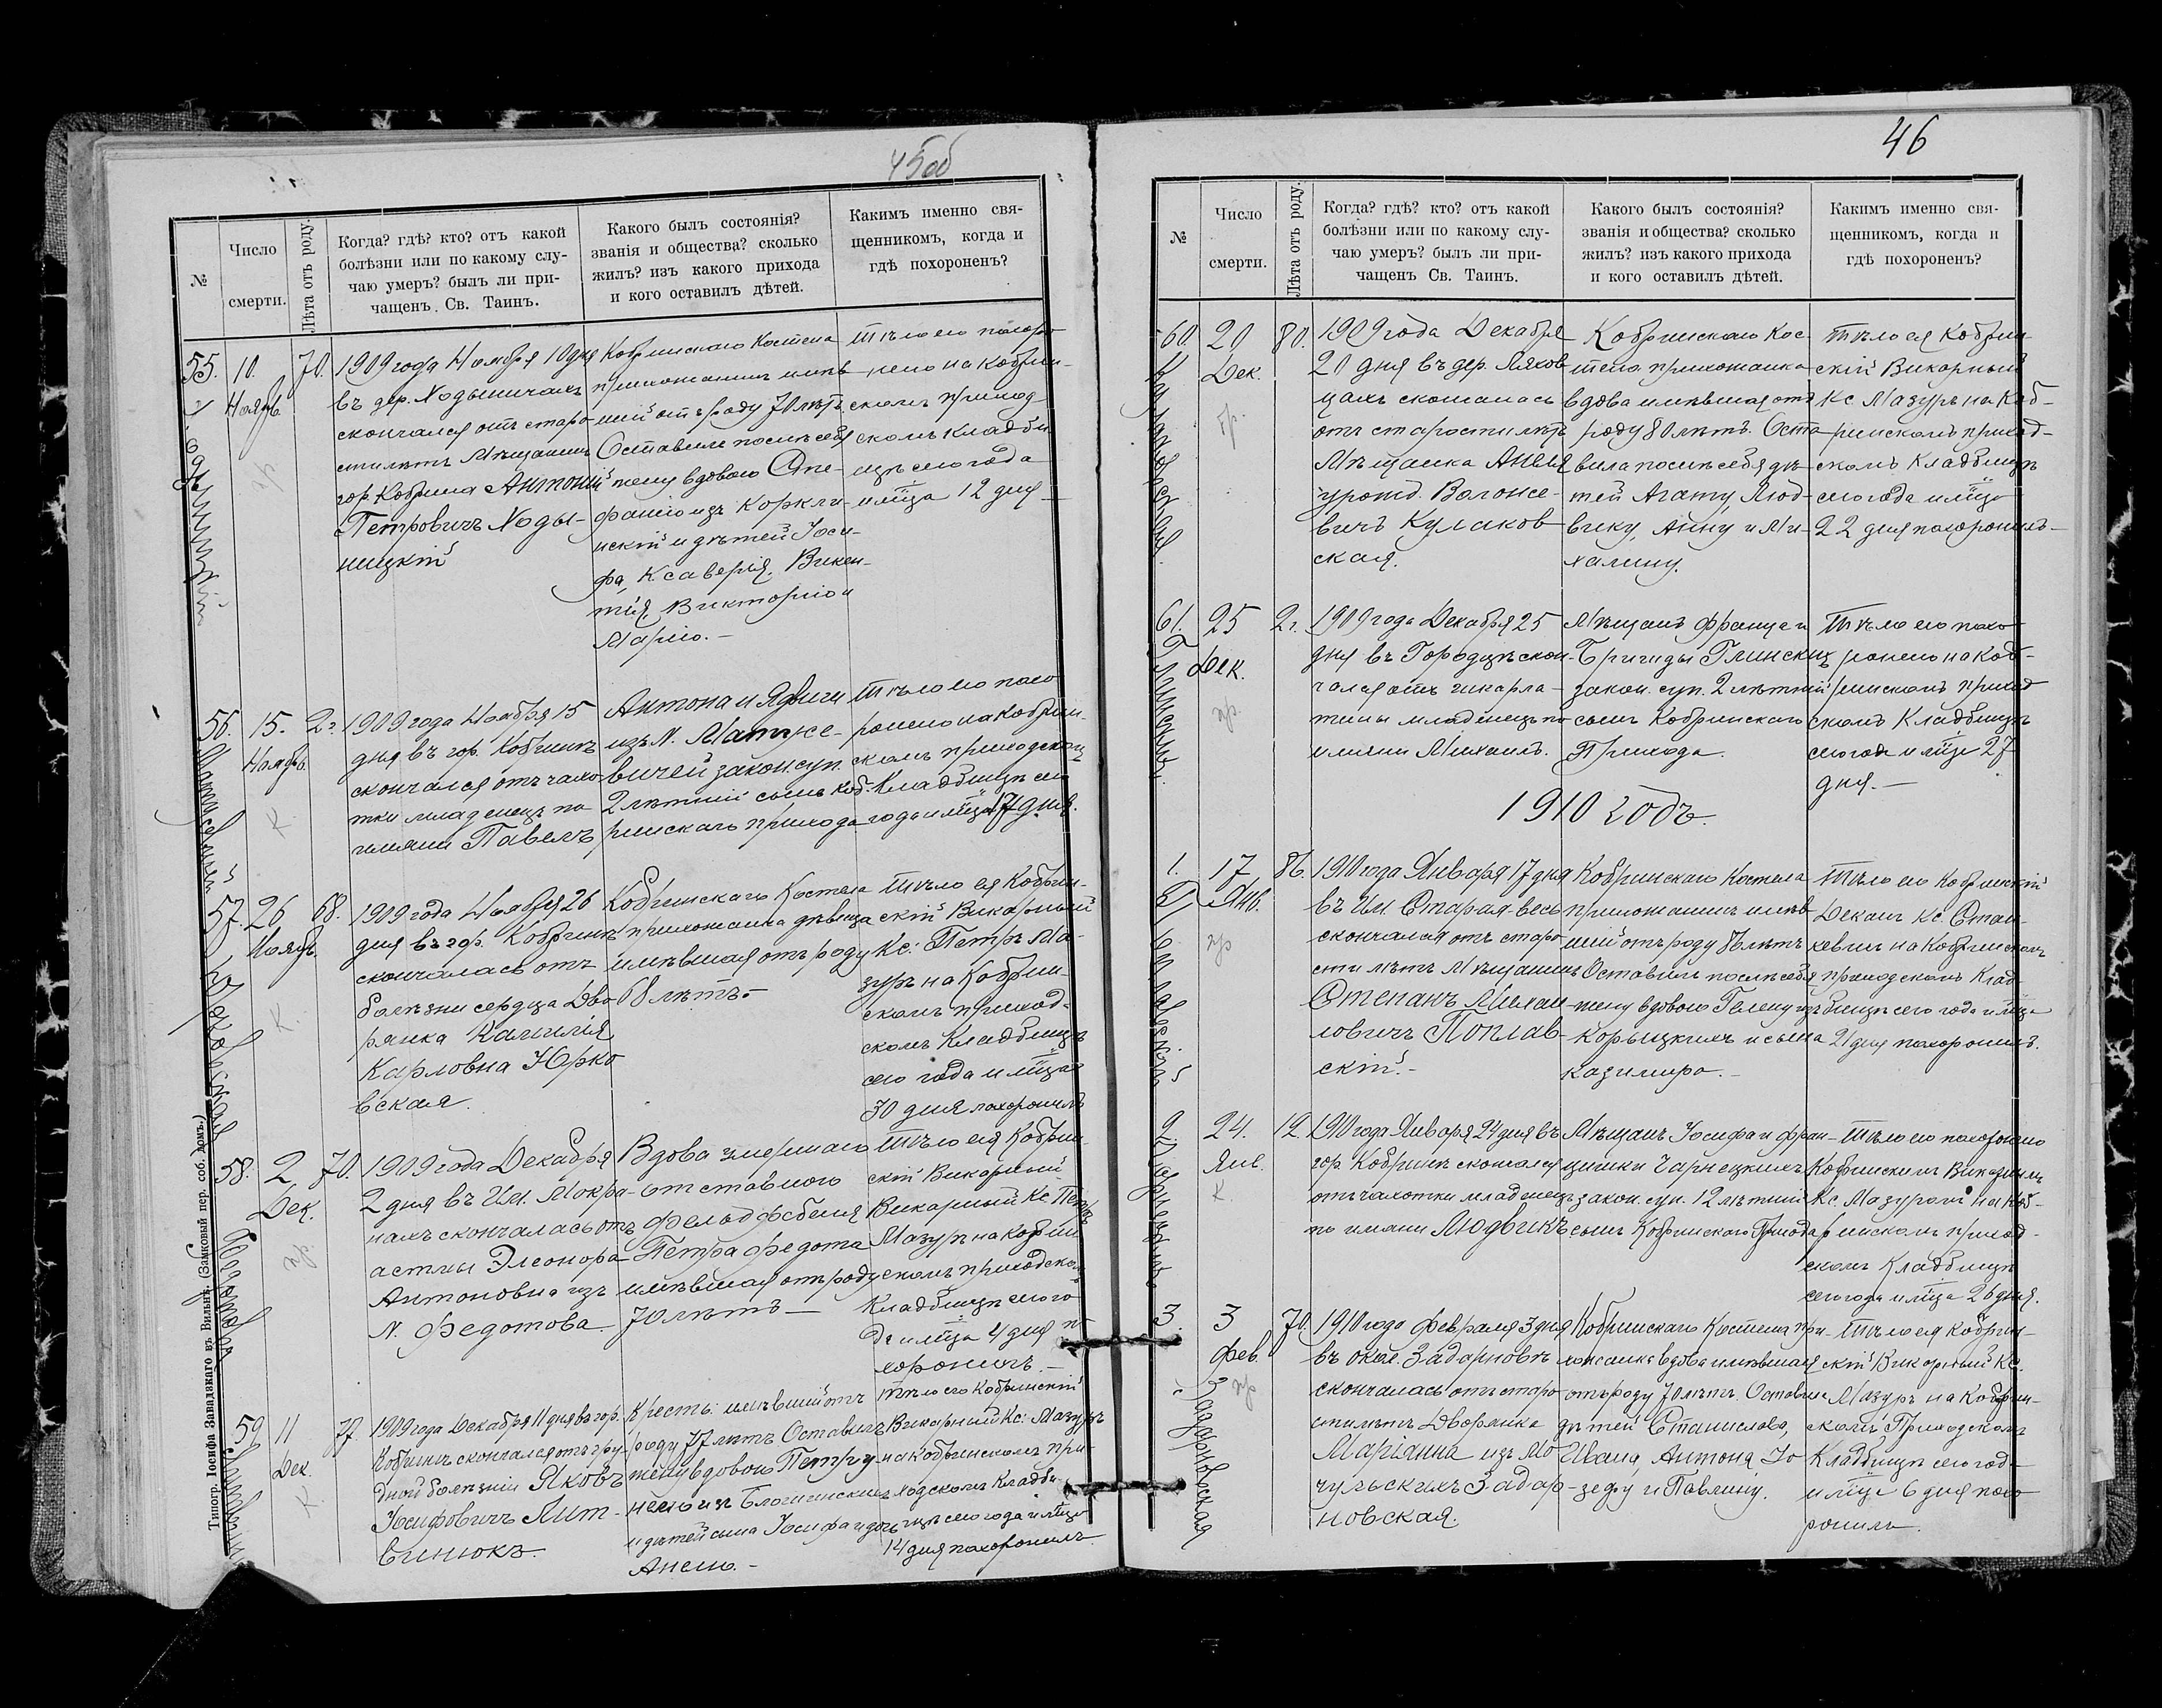 45об
№
Число
смерти.
Лѣта отъ роду.
Когда? гдѣ? кто? отъ какой
болѣзни или по какому слу-
чаю умеръ? былъ ли при-
чащенъ Св. Таинъ.
Какого былъ состоянія?
званія и общества? сколько
жилъ? изъ какого прихода
и кого оставилъ дѣтей.
Какимъ именно свя-
щенникомъ, когда и
гдѣ похороненъ?
55.
10.
Ноябр.
70.
1909 года Ноября 10 дня
въ дер. Ходыничахъ
скончался отъ старо-
сти лѣтъ Мѣщанинъ
гор. Кобрина Антоній
Петровичъ Ходы-
ницкій
Кобринскаго Костела
прихожанинъ имѣв-
шій отъ роду 70 лѣтъ
Оставилъ послѣ себя
жену вдовою Сте-
фанію изъ
и дѣтей Іоси-
фа, Ксаверія, Викен-
тія, Викторію и
Марію. —
Тѣло его похоро-
нено на Кобрин-
скомъ приход-
скомъ Кладби-
щѣ сего года
и м̃ца 12 дня —
56.
15.
Ноябр.
2 г.
1909 года Ноября 15
дня въ гор. Кобринѣ
скончался отъ чахо-
тки младенецъ по
имени Павелъ
Антона и Ядвиги
изъ N. Матусе-
вичей закон. суп.
2 лѣтній сынъ Коб-
ринскаго прихода
Тѣло его похо
ронено на Кобрин-
скомъ приходскомъ
Кладбищѣ сего
года и м̃ца 17 дня.
57.
26
Ноябр.
К.
68.
1909 года Ноября 26
дня въ гор. Кобринѣ
скончалась отъ
болѣзни сердца Дво-
рянка Камилія
Карловна Юрко
вская.
Кобринскаго Костела
прихожанка дѣвица
имѣвшая отъ роду
68 лѣтъ. —
Тѣло ея Кобрин-
скій Викарный
Кс: Петръ Ма-
зуръ на Кобрин-
скомъ приход-
скомъ Кладбищѣ
сего года и м̃ца
30 дня похоронилъ
58.
2
Дек.
пр.
70.
1909 года Декабря
2 дня въ Им. Мокра-
нахъ скончалась отъ
астмы Элеонора
Антоновна изъ
N. Федотова.
Вдова умершаго
отставного
Фельдфебеля
Петра Федота
имѣвшая отъ роду
70 лѣтъ —
Тѣло ея Кобрин-
скій Викарный
Викарный Кс. Петръ
Мазуръ на Кобрин
скомъ приходскомъ
Кладбищѣ сего го
да и м̃ца 4 дня по
хоронилъ. —
59
11
Дек.
К.
77.
1909 года Декабря 11 дня въ гор.
Кобринѣ скончался отъ гру-
дной болѣзни Яковъ
Іосифовичъ Лит-
винюкъ.
Крест. имѣвшій отъ
роду 77 лѣтъ Оставилъ
жену вдовою Петру-
нелю изъ
и дѣтей сына Іосифа и дочь
Анелю. —
Тѣло его Кобринскій
Викарный Кс: Мазуръ
на Кобринскомъ при-
ходскомъ Кладби-
щѣ сего года и м̃ца
14 дня похоронилъ
Типогр. Іосифа Завадзкаго въ Вильнѣ. (Замковый пер. соб. домъ.)
46
№
Число
смерти.
Лѣта отъ роду.
Когда? гдѣ? кто? отъ какой
болѣзни или по какому слу-
чаю умеръ? былъ ли при-
чащенъ Св. Таинъ.
Какого былъ состоянія?
званія и общества? сколько
жилъ? изъ какого прихода
и кого оставилъ дѣтей.
Какимъ именно свя-
щенникомъ, когда и
гдѣ похороненъ?
60.
Кулаковская.
20
Дек.
пр.
80.
1909 года Декабря
20 дня въ дер. Ляхов
цахъ скончалась
отъ старости лѣтъ
Мѣщанка Анеля
урожд. Волонсе-
вичъ Кулаков
ская.
Кобринскаго Кос-
тела прихожанка
вдова имѣвшая отъ
роду 80 лѣтъ. Оста
вила послѣ себя дѣ-
тей Агату, Люд-
вику, Анну и Ми-
халину.
Тѣло ея Кобрин-
скій Викарный
Кс. Мазуръ на Коб-
ринскомъ приход-
скомъ Кладбищѣ
сего года и м̃ца
22 дня похоронилъ —
61.
Глинскій.
25
Дек.
пр.
2 г.
1909 года Декабря 25
дня въ Городцѣ скон-
чался отъ шкарла-
тины младенецъ по
имени Михаилъ.
Мѣщанъ Франца и
Бригиды Глинскихъ
закон. суп. 2 лѣтній
сынъ Кобринскаго
Прихода.
Тѣло его похо
ронено на Коб-
ринскомъ приход
скомъ Кладбищѣ
сего года и м̃ца 27
дня. —
1910 годъ.
1.
Поплавскій
17
Янв.
пр
86.
1910 года Января 17 дня
въ Им. Старая-весь
скончался отъ старо
сти лѣтъ Мѣщанинъ
Степанъ Михай-
ловичъ Поплав-
скій. —
Кобринскаго Костела
прихожанинъ имѣв
шій отъ роду 86 лѣтъ
Оставилъ послѣ себя
жену вдовою Гелену изъ
Корыцкихъ и сына
Казимира. —
Тѣло его Кобринскій
Деканъ Кс. Стан-
кевичъ на Кобринскомъ
приходскомъ Клад-
бищѣ сего года и м̃ца
21 дня похоронилъ.
2
24.
Янв.
К.
12.
1910 года Января 24 дня въ
гор. Кобринѣ скончался
отъ чахотки младенецъ
по имени Людвикъ
Мѣщанъ Іосифа и Фран-
цишки Чарнецкихъ
закон. суп. 12 лѣтній
сынъ Кобринскаго Прихода
Тѣло его похоронено
Кобринскимъ Викарнымъ
Кс. Мазуромъ на Коб-
ринскомъ приход-
скомъ Кладбищѣ
сего года и м̃ца 26 дня.
3.
Задарновская
3
Фев.
пр
70.
1910 года Февраля 3 дня
въ окол. Задарновѣ
скончалась отъ старо
сти лѣтъ Дворянка
Маріанна изъ Мо
чульскихъ Задар-
новская.
Кобринскаго Костела при-
хожанка вдова имѣвшая
отъ роду 70 лѣтъ. Оставила
дѣтей Станислава,
Ивана, Антона, Іо
зефу и Павлину.
Тѣло ея Кобрин-
скій Викарный Кс.
Мазуръ на Кобрин-
скомъ Приходскомъ
Кладбищѣ сего года
и м̃ца 6 дня похо
ронилъ.